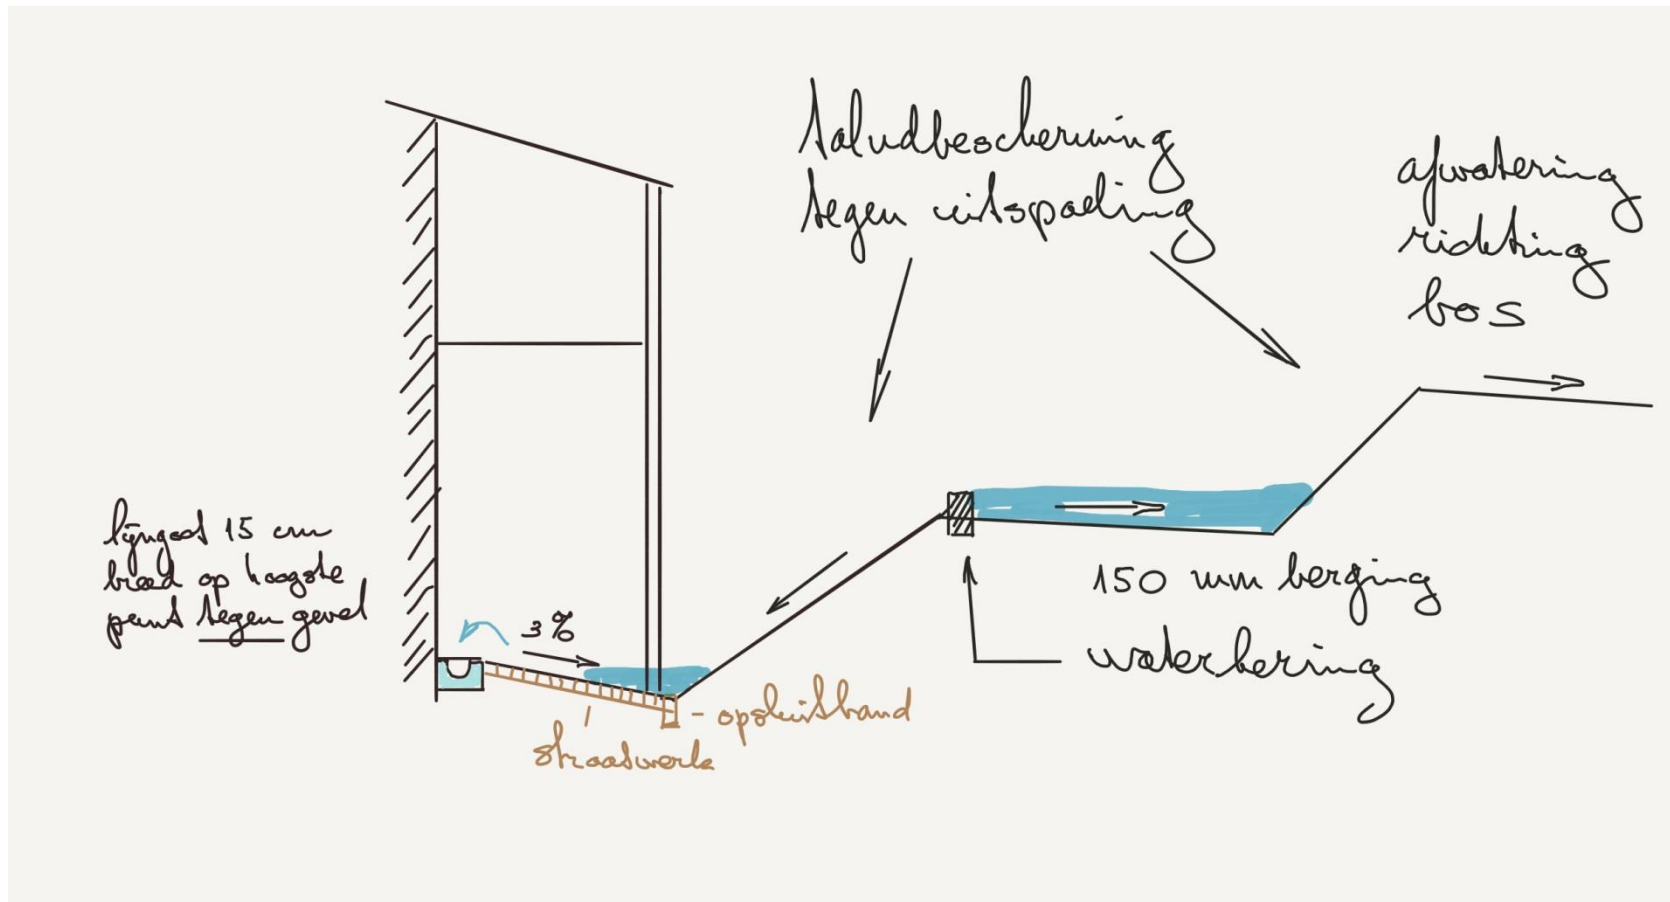 taludbescherming
tegen uitspoeling
afwatering
richting
bos
lijngoot 15 cm
breed op hoogste
punt tegen gevel
3%
150 mm berging
waterkering
- opsluitband
straatwerk